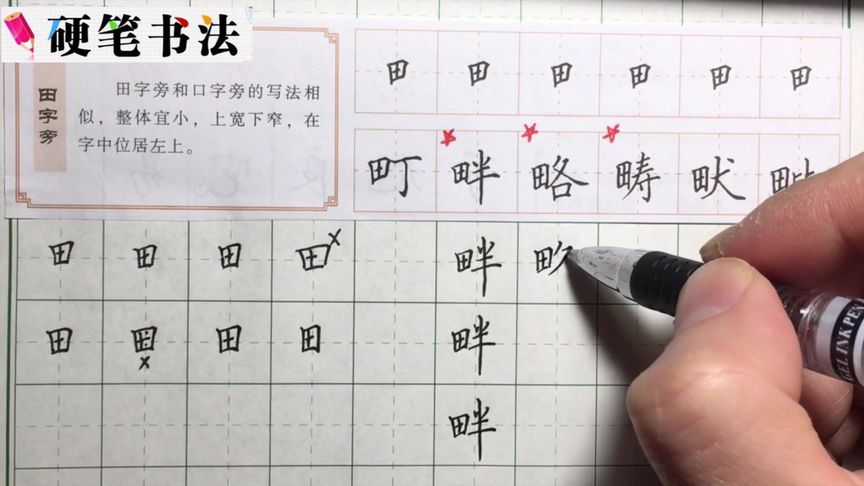 硬笔书法
田字旁
田字旁和口字旁的写法相
似，整体宜小，上宽下窄，在
字中位居左上。
田 田 田 田 田 田
町 畔 略 畴 畎
田 田 田 田 x 畔
田 田 x 田 田 畔
畔
GEL INK PEN